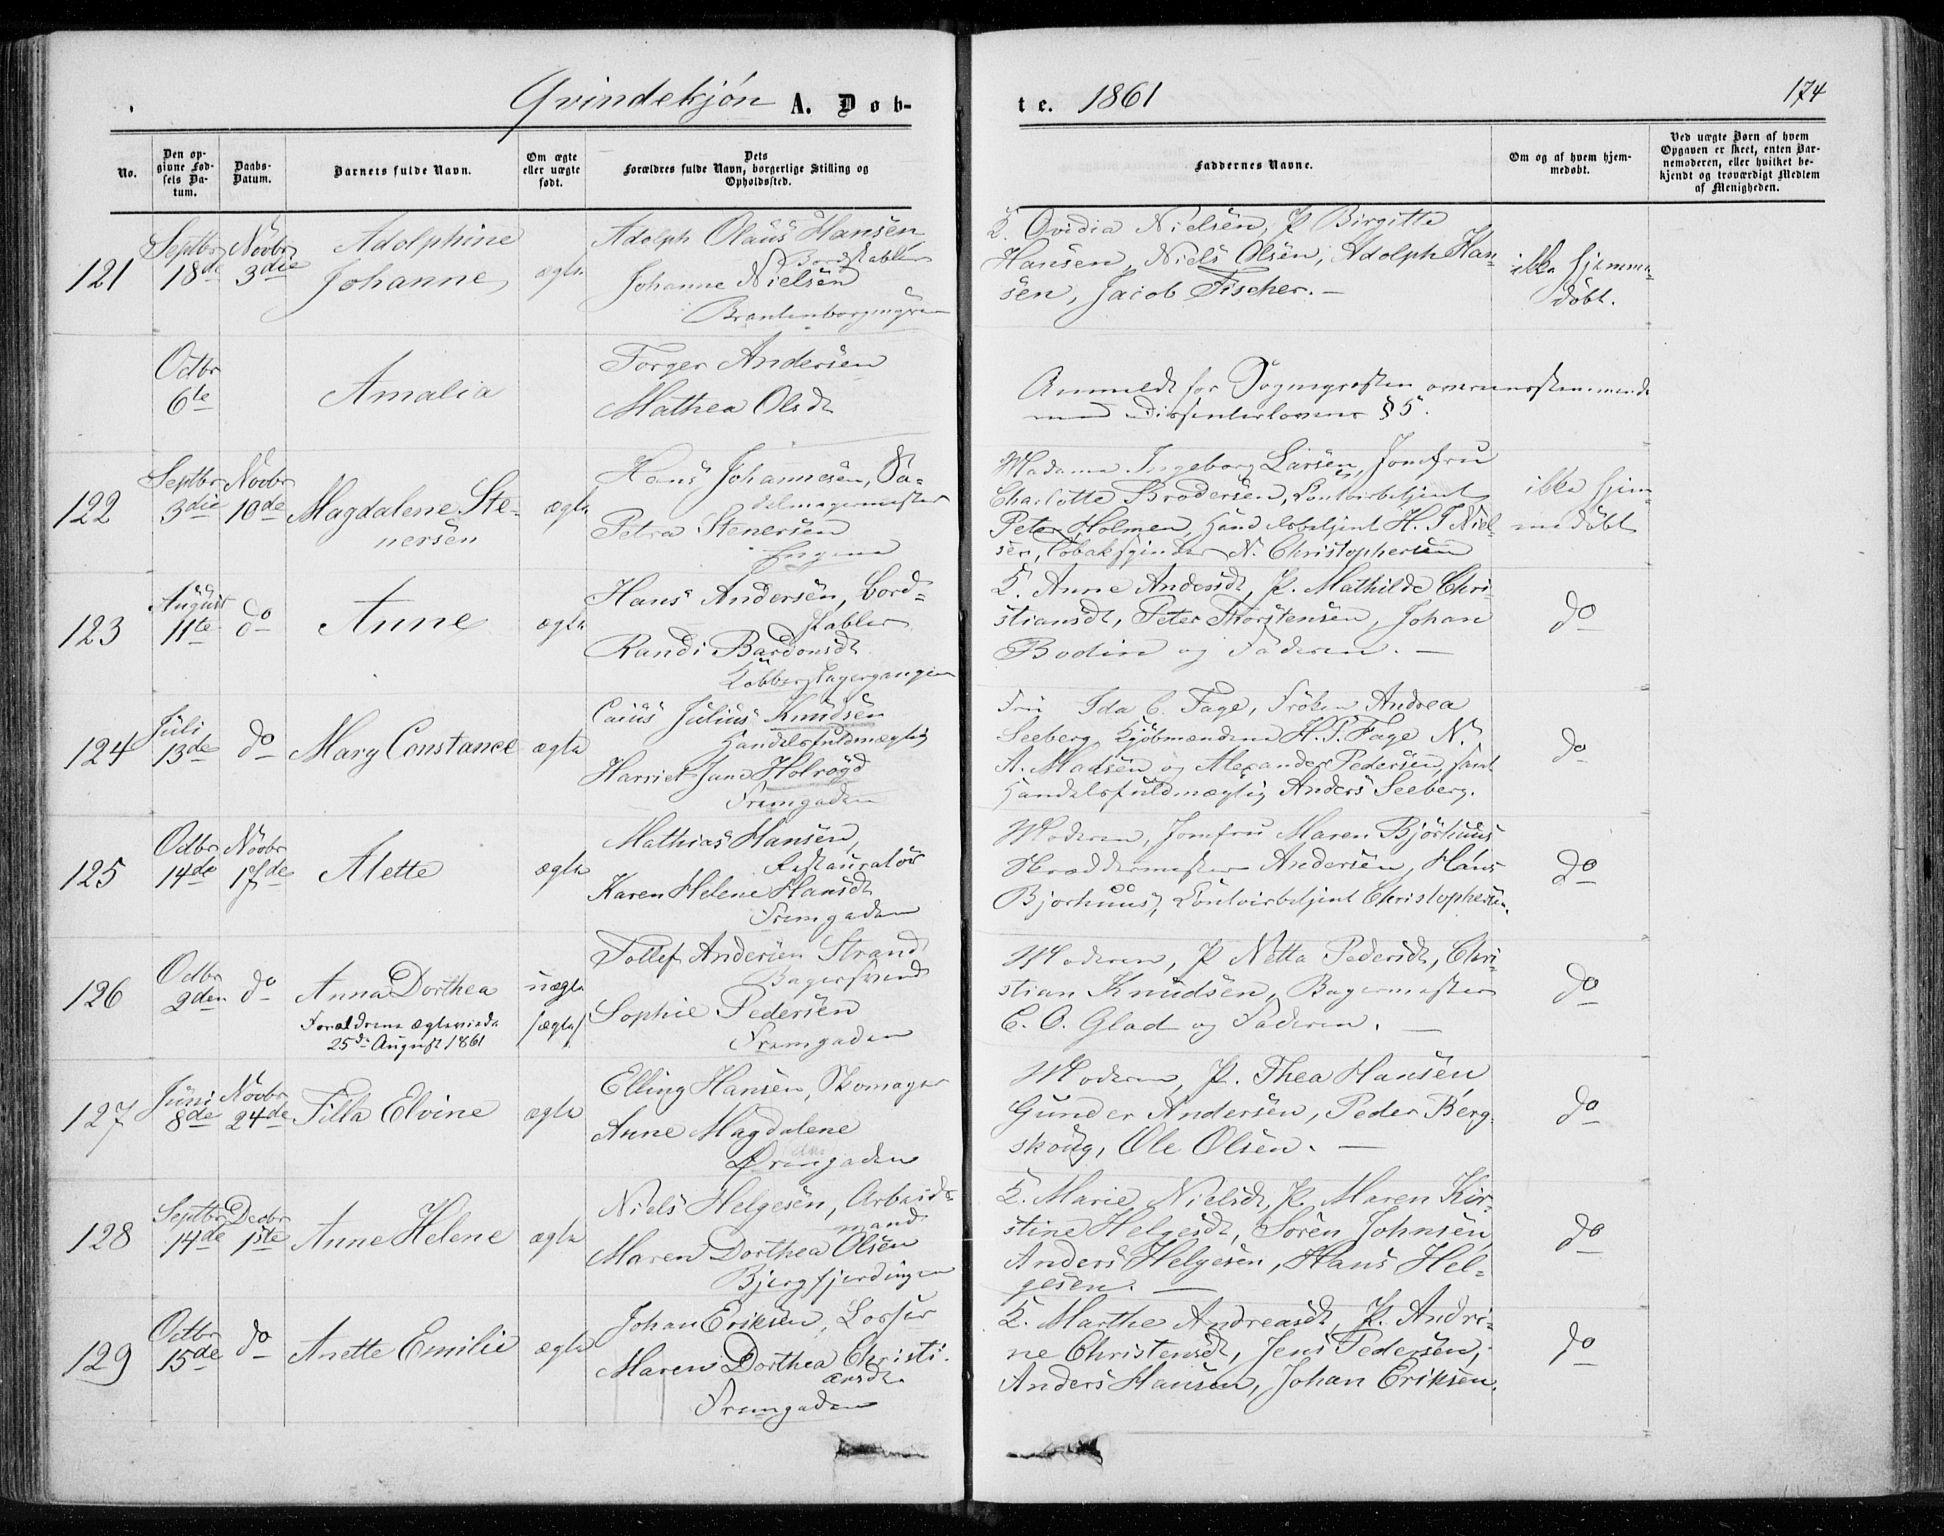 Qvindekjøn A. Døb-
te. 1861
174
No.
Den opgivne Fødsels Datum.
Daabs-Datum.
Barnets fulde Navn.
Om ægte eller uægte født.
Dets Forældres fulde Navn, borgerlige Stilling og Opholdssted.
Faddernes Navne.
Om og af hvem hjemmedøbt.
Ved uægte Børn af hvem Opgaven er skeet, enten Barnemoderen, eller hvilket bekjendt og troværdigt Medlem af Menigheden.
121
Septbr 18de
Novbr 3die
Adolphine
Johanne
ægte
Adolph Olaus Hansen
Bordstabler
Johanne Nielsen
K. Ovidia Nielsen, P. Birgitte
Hansen, Niels Olsen, Adolph Han-
sen, Jacob Fischer. —
ikke hjemme-
døbt.
Octbr 6te
Amalia
Torger Andersen
Mathea Olsdt
Anmeldt for Sognepresten overensstemmende
med Dissenterlovens § 5.
122
Septbr 3die
Novbr 10de
Magdalene Ste-
nersen
ægte
Hans Johannesen, Sa-
delmagermester
Petra Stenersen
Engene
Madame Ingeborg Larsen, Jomfru
Charlotte Brodersen, Contoirbetjent
Peter Holmen, Handelsbetjent H. J. Niel-
sen, Tobakspinder N. Christophersen
ikke hjem-
medøbt
123
August 11te
do
Anne
ægte
Hans Andersen, Bord-
stabler
Randi Bardonsdt
K. Anne Andersdt, P. Mathilde Chri-
stiansdt, Peter Thorstensen, Johan
Bodin og Faderen. —
do
124
Juli 13de
do
Mary Constance
ægte
Caius Julius Knudsen
Handelsfuldmægtig
Harriet Jane Holroyd
Strømgaden
Fru Ida C. Fage, Frøken Andrea
Seeberg, Kjøbmændene H. P. Fage N.
A. Madsen og Alexander Pedersen, samt
Handelsfuldmægtig Anders Seeberg.
do
125
Octbr 14de
Novbr 17de
Alette
ægte
Mathias Hansen,
Restauratør
Karen Helene Hansdt
Strømgaden
Moderen, Jomfru Maren Bjørhuus
Skræddermester Andersen, Hans
Bjorhuus, Contoirbetjent Christophersen.
do
126
Octbr 2den
do
Anna Dorthea
Forældrene ægteviede
25de August 1861
uægte
/ægte/
Tollef Andersen Strand
Bagersvend
Sophie Pedersen
Strømgaden
Moderen, P. Netta Pedersdt, Chri-
stian Knudsen, Bagermester
C. O. Glad og Faderen. —
do
127
Juni 8de
Novbr 24de
Tilla Elvine
ægte
Elling Hansen, Skomager
Anne Magdalene
Moderen, P. Thea Hansen
Gunder Andersen, Peder Berg-
skoug, Ole Olsen. —
do
128
Septbr 14de
Decbr 1ste
Anne Helene
ægte
Niels Helgesen, Arbeids-
mand
Maren Dorthea Olsen
Bjergfjerdingen
K. Marie Nielsdt, P. Maren Kir-
stine Helgesdt, Søren Johnsen
Anders Helgesen, Hans Hel-
gesen. —
do
129
Octbr 15de
do
Anette Emilie
ægte
Johan Eriksen, Losser
Maren Dorthea Christi-
ansdt
Strømgaden
K. Marthe Andreasdt, P. Andri-
ne Christensdt, Jens Pedersen,
Anders Hansen, Johan Eriksen.
do